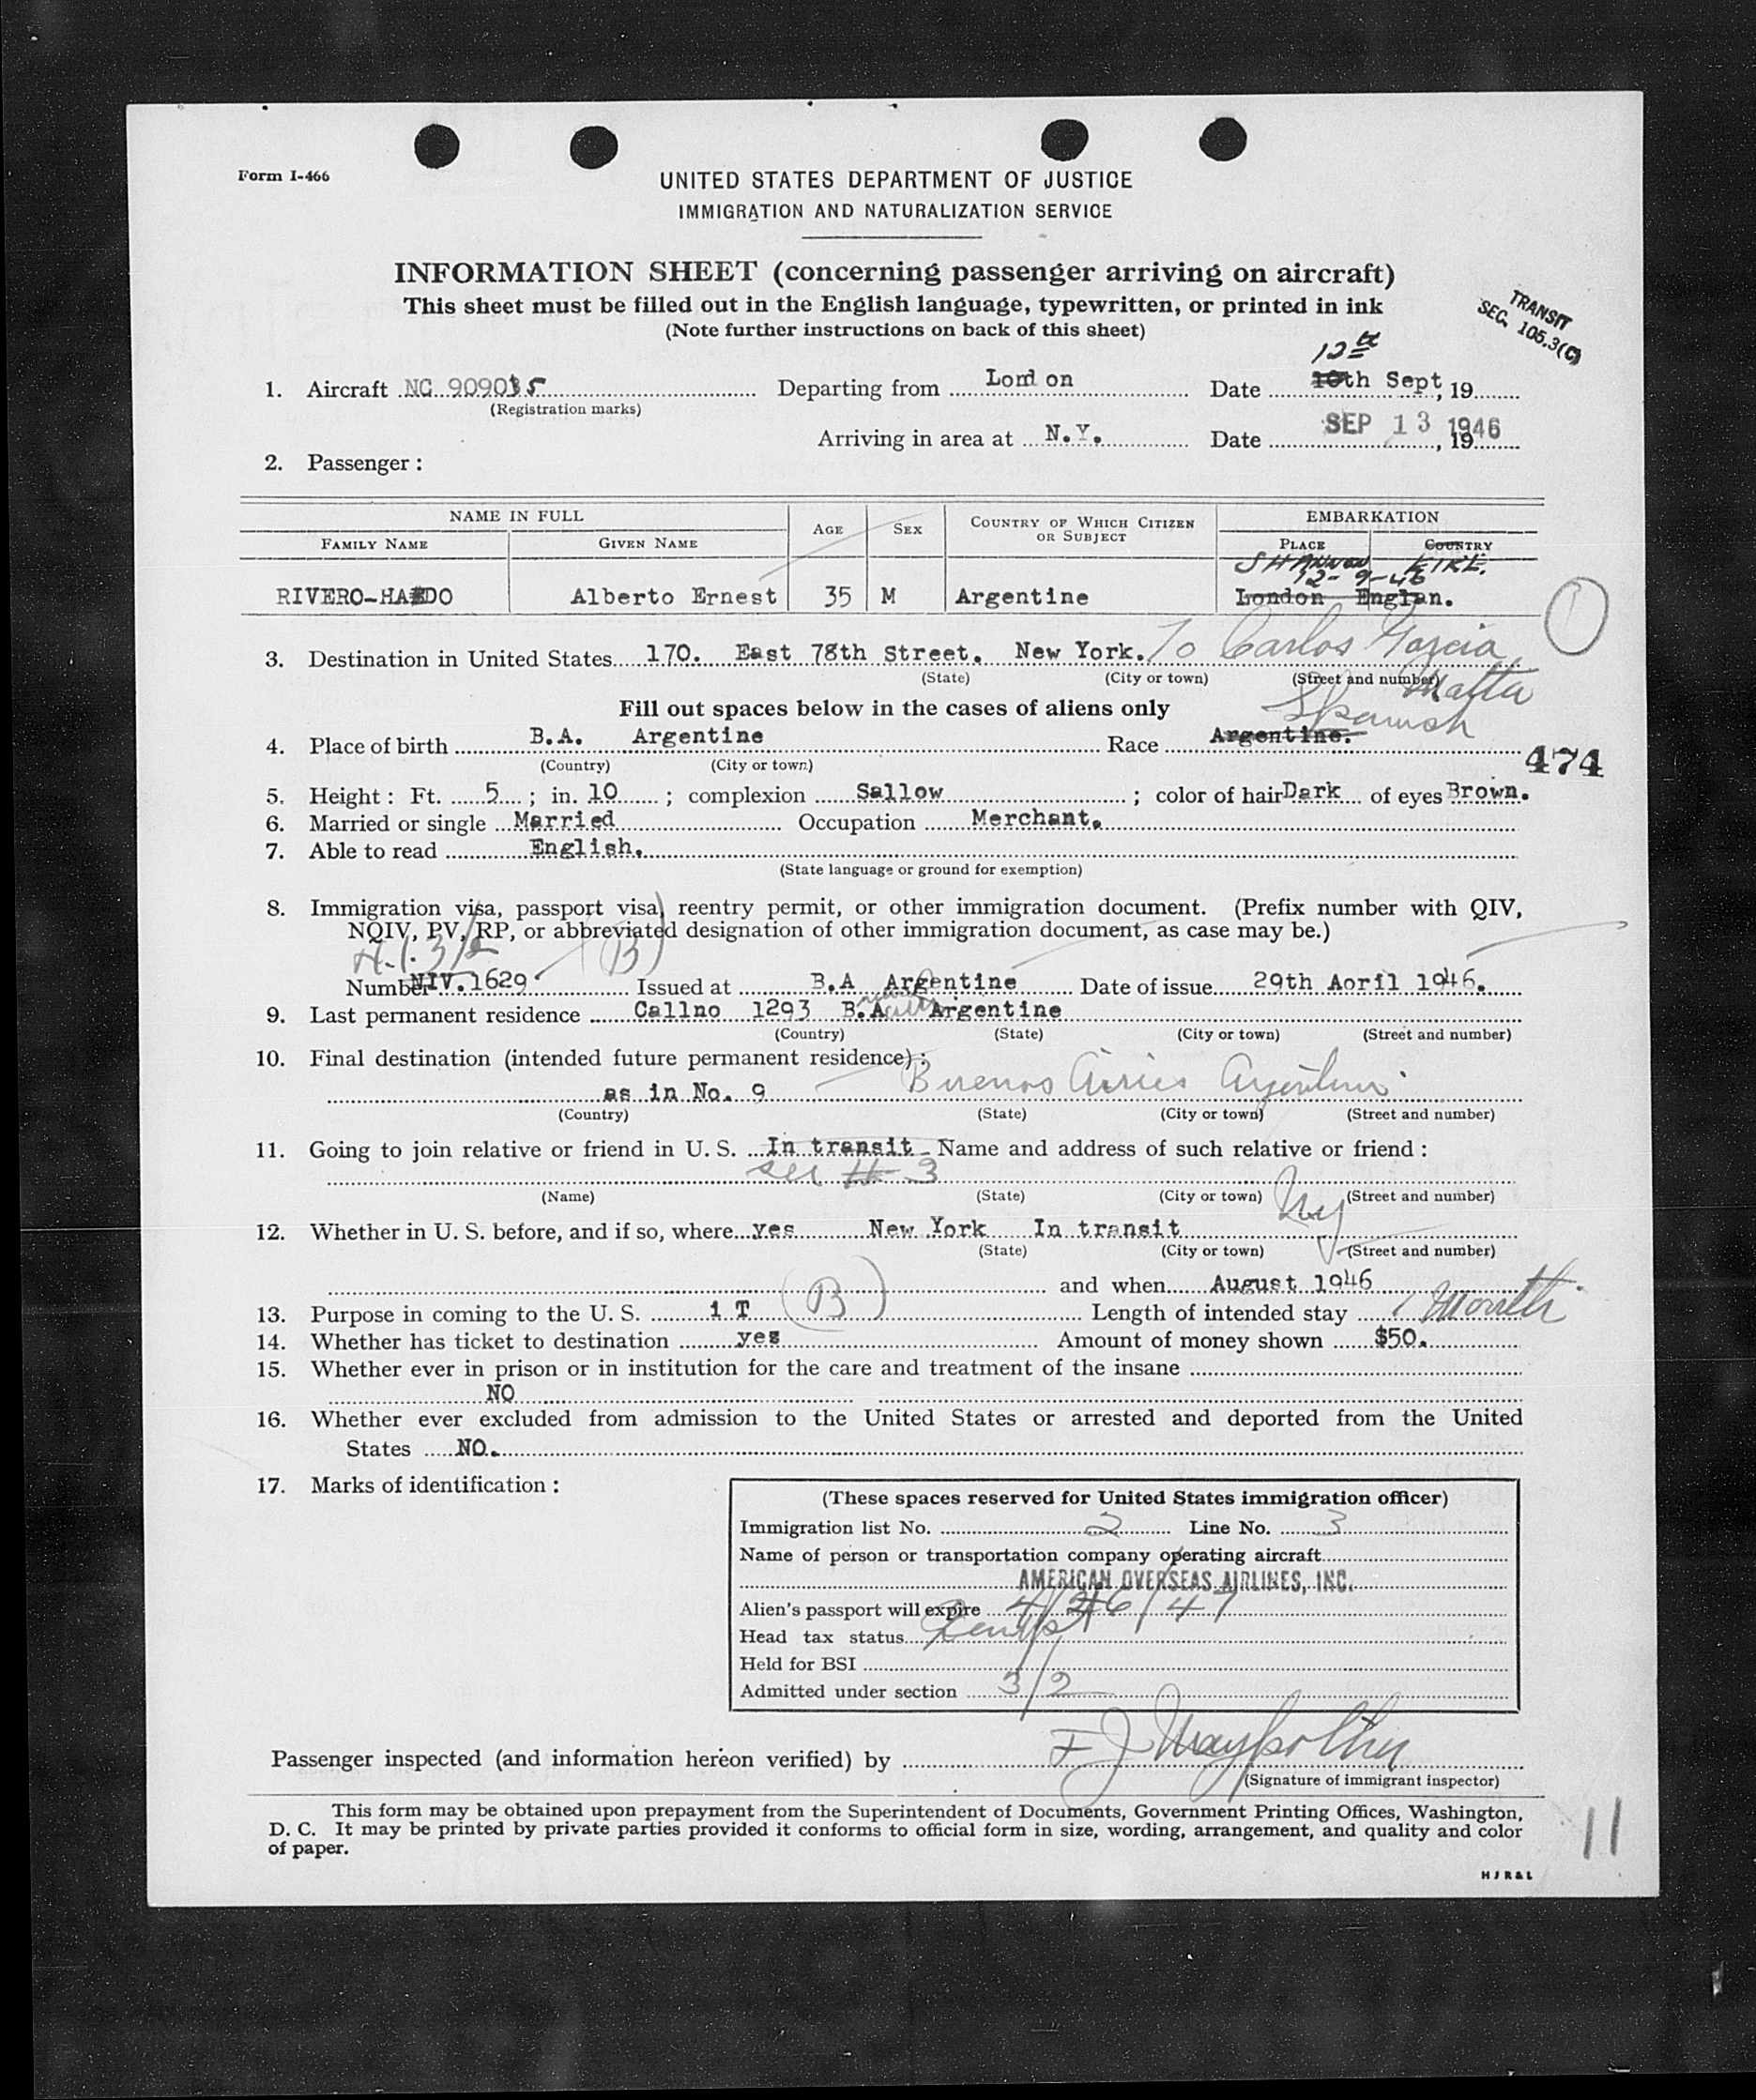 Form I-466
UNITED STATES DEPARTMENT OF JUSTICE
IMMIGRATION AND NATURALIZATION SERVICE
INFORMATION SHEET (concerning passenger arriving on aircraft)
This sheet must be filled out in the English language, typewritten, or printed in ink
(Note further instructions on back of this sheet)
TRANSIT
SEC. 105.3(C)
12th
1. Aircraft NC 90905 Departing from London Date 10th Sept, 19
(Registration marks)
Arriving in area at N.Y. Date SEP 13 1946, 19
2. Passenger :
NAME IN FULL AGE SEX COUNTRY OF WHICH CITIZEN OR SUBJECT EMBARKATION
FAMILY NAME GIVEN NAME PLACE COUNTRY
SHANNON EIRE.
12-9-46
RIVERO-HAEDO Alberto Ernest 35 M Argentine London Englan.
3. Destination in United States 170. East 78th Street. New York. To Carlos Garcia
(State) (City or town) (Street and number) Matta
Fill out spaces below in the cases of aliens only
Spanish
4. Place of birth B.A. Argentine Race Argentine.
(Country) (City or town)
474
5. Height : Ft. 5 ; in. 10 ; complexion Sallow ; color of hair Dark of eyes Brown.
6. Married or single Married Occupation Merchant.
7. Able to read English.
(State language or ground for exemption)
8. Immigration visa, passport visa, reentry permit, or other immigration document. (Prefix number with QIV,
NQIV, PV, RP, or abbreviated designation of other immigration document, as case may be.)
3/2 (B)
Number NIV.1629 Issued at B.A Argentine Date of issue 29th Aoril 1946.
9. Last permanent residence Callno 1293 B.A Argentine
(Country) (State) (City or town) (Street and number)
10. Final destination (intended future permanent residence) :
as in No. 9 Buenos Aires Argentina
(Country) (State) (City or town) (Street and number)
11. Going to join relative or friend in U. S. In transit Name and address of such relative or friend :
see # 3
(Name) (State) (City or town) (Street and number)
NY
12. Whether in U. S. before, and if so, where yes New York In transit
(State) (City or town) (Street and number)
and when August 1946
13. Purpose in coming to the U. S. i T (B) Length of intended stay 1 Month
14. Whether has ticket to destination yes Amount of money shown $50.
15. Whether ever in prison or in institution for the care and treatment of the insane
NO
16. Whether ever excluded from admission to the United States or arrested and deported from the United
States NO.
17. Marks of identification :
(These spaces reserved for United States immigration officer)
Immigration list No. 2 Line No. 3
Name of person or transportation company operating aircraft
AMERICAN OVERSEAS AIRLINES, INC.
Alien's passport will expire 4/26/47
Head tax status
Held for BSI
Admitted under section 3/2
Passenger inspected (and information hereon verified) by F J
(Signature of immigrant inspector)
This form may be obtained upon prepayment from the Superintendent of Documents, Government Printing Offices, Washington,
D. C. It may be printed by private parties provided it conforms to official form in size, wording, arrangement, and quality and color
of paper.
11
H J R & L